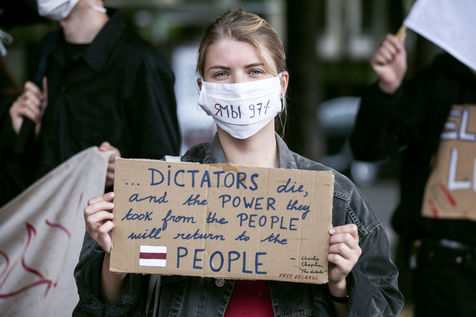 ЯМЫ 97%
... DICTATORS die,
and the POWER they
took from the PEOPLE
will return to the
PEOPLE
- Charlie
Chaplin,
"The dictator"
FREE BELARUS